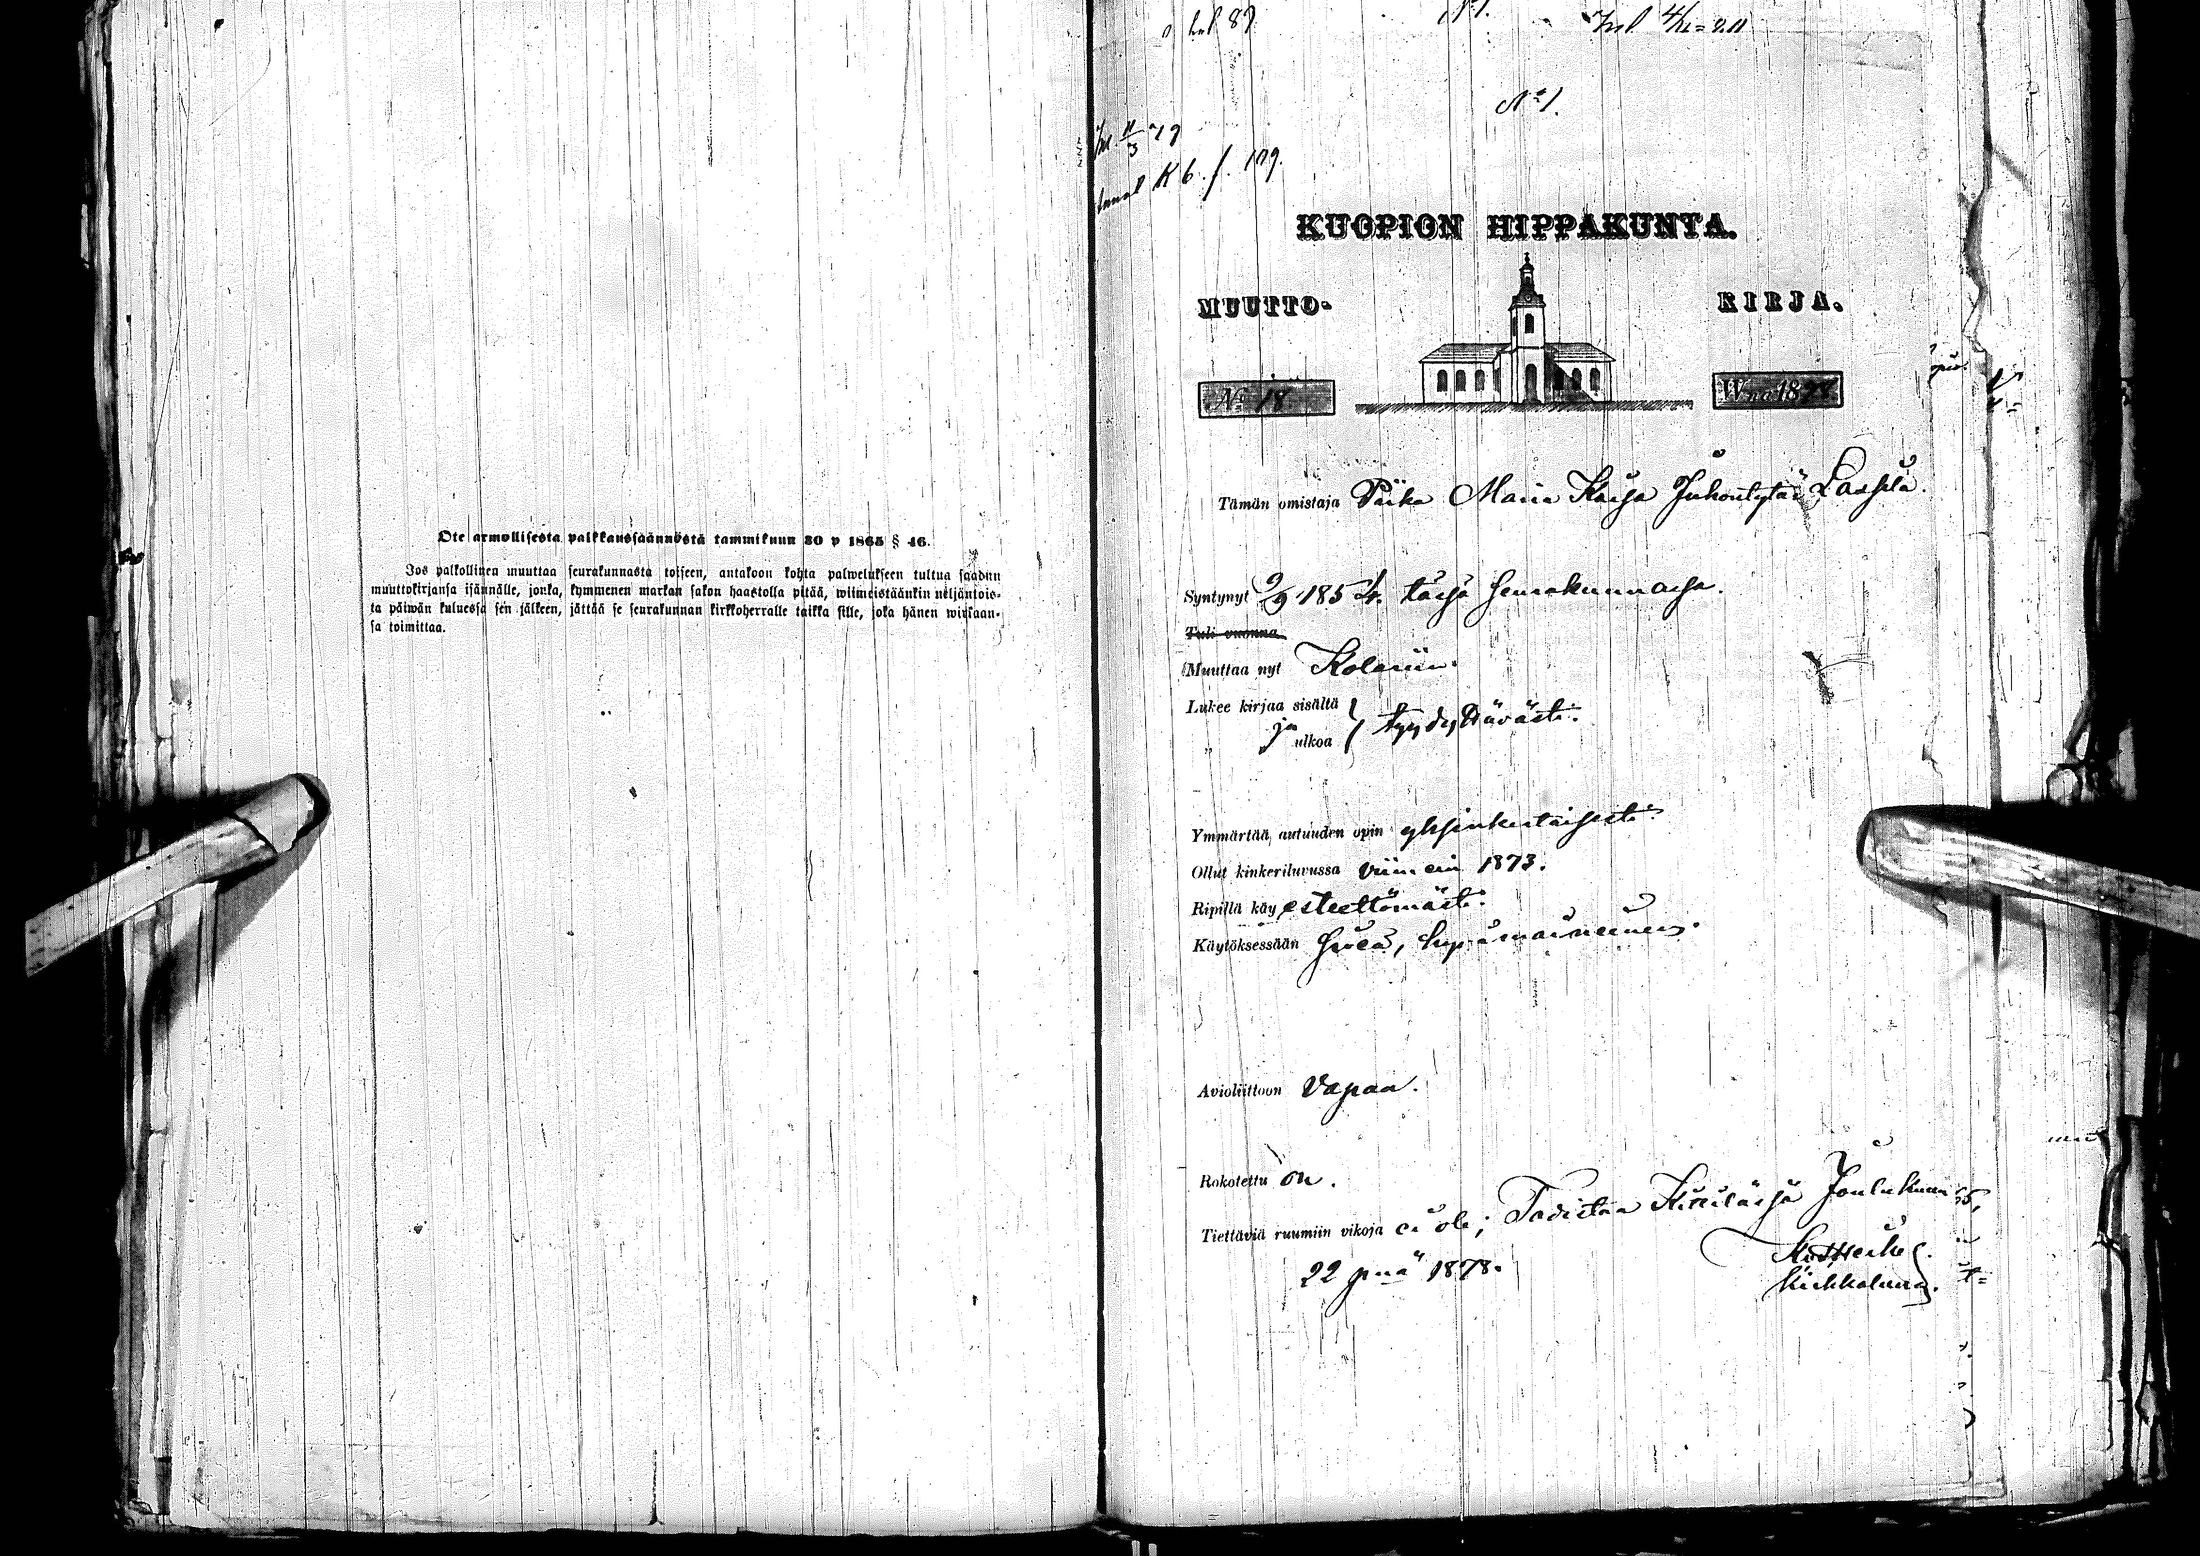 Ote armollisesta palkkaussäännöstä tammikuun 30 p 1865 § 46.
Jos palkollinen muuttaa seurakunnasta toiseen, antakoon kohta palwelukseen tultua saadun
muuttokirjansa isännälle, jonka, kymmenen markan sakon haastolla pitää, wiimeistäänkin neljäntois-
ta päiwän kuluessa sen jälkeen, jättää se seurakunnan kirkkoherralle taikka sille, joka hänen wirkaan-
sa toimittaa.
№ 1.
11/3 79
K 6. f. 179.
KUOPION HIPPAKUNTA.
MUUTTO- KIRJA.
№ 18 Wna 1878
Tämän omistaja Piika Maria Kaisa Juhontytär Lassila.
Syntynyt 2/9 1854. tässä seurakunnassa.
Tuli vuonna
Muuttaa nyt Kolariin.
Lukee kirjaa sisältä
„ ja ulkoa } tyydyttävästi.
Ymmärtää autuuden opin yksinkertaisesti.
Ollut kinkeriluvussa viimein 1873.
Ripillä käy esteettömästi.
Käytöksessään siveä, hyvämaineinen.
Avioliittoon vapaa.
Rokotettu on.
Tiettäviä ruumiin vikoja ei ole; Todistaa Kittilässä Joulukuun
22 pnä 1878.
Kirkkoherra.